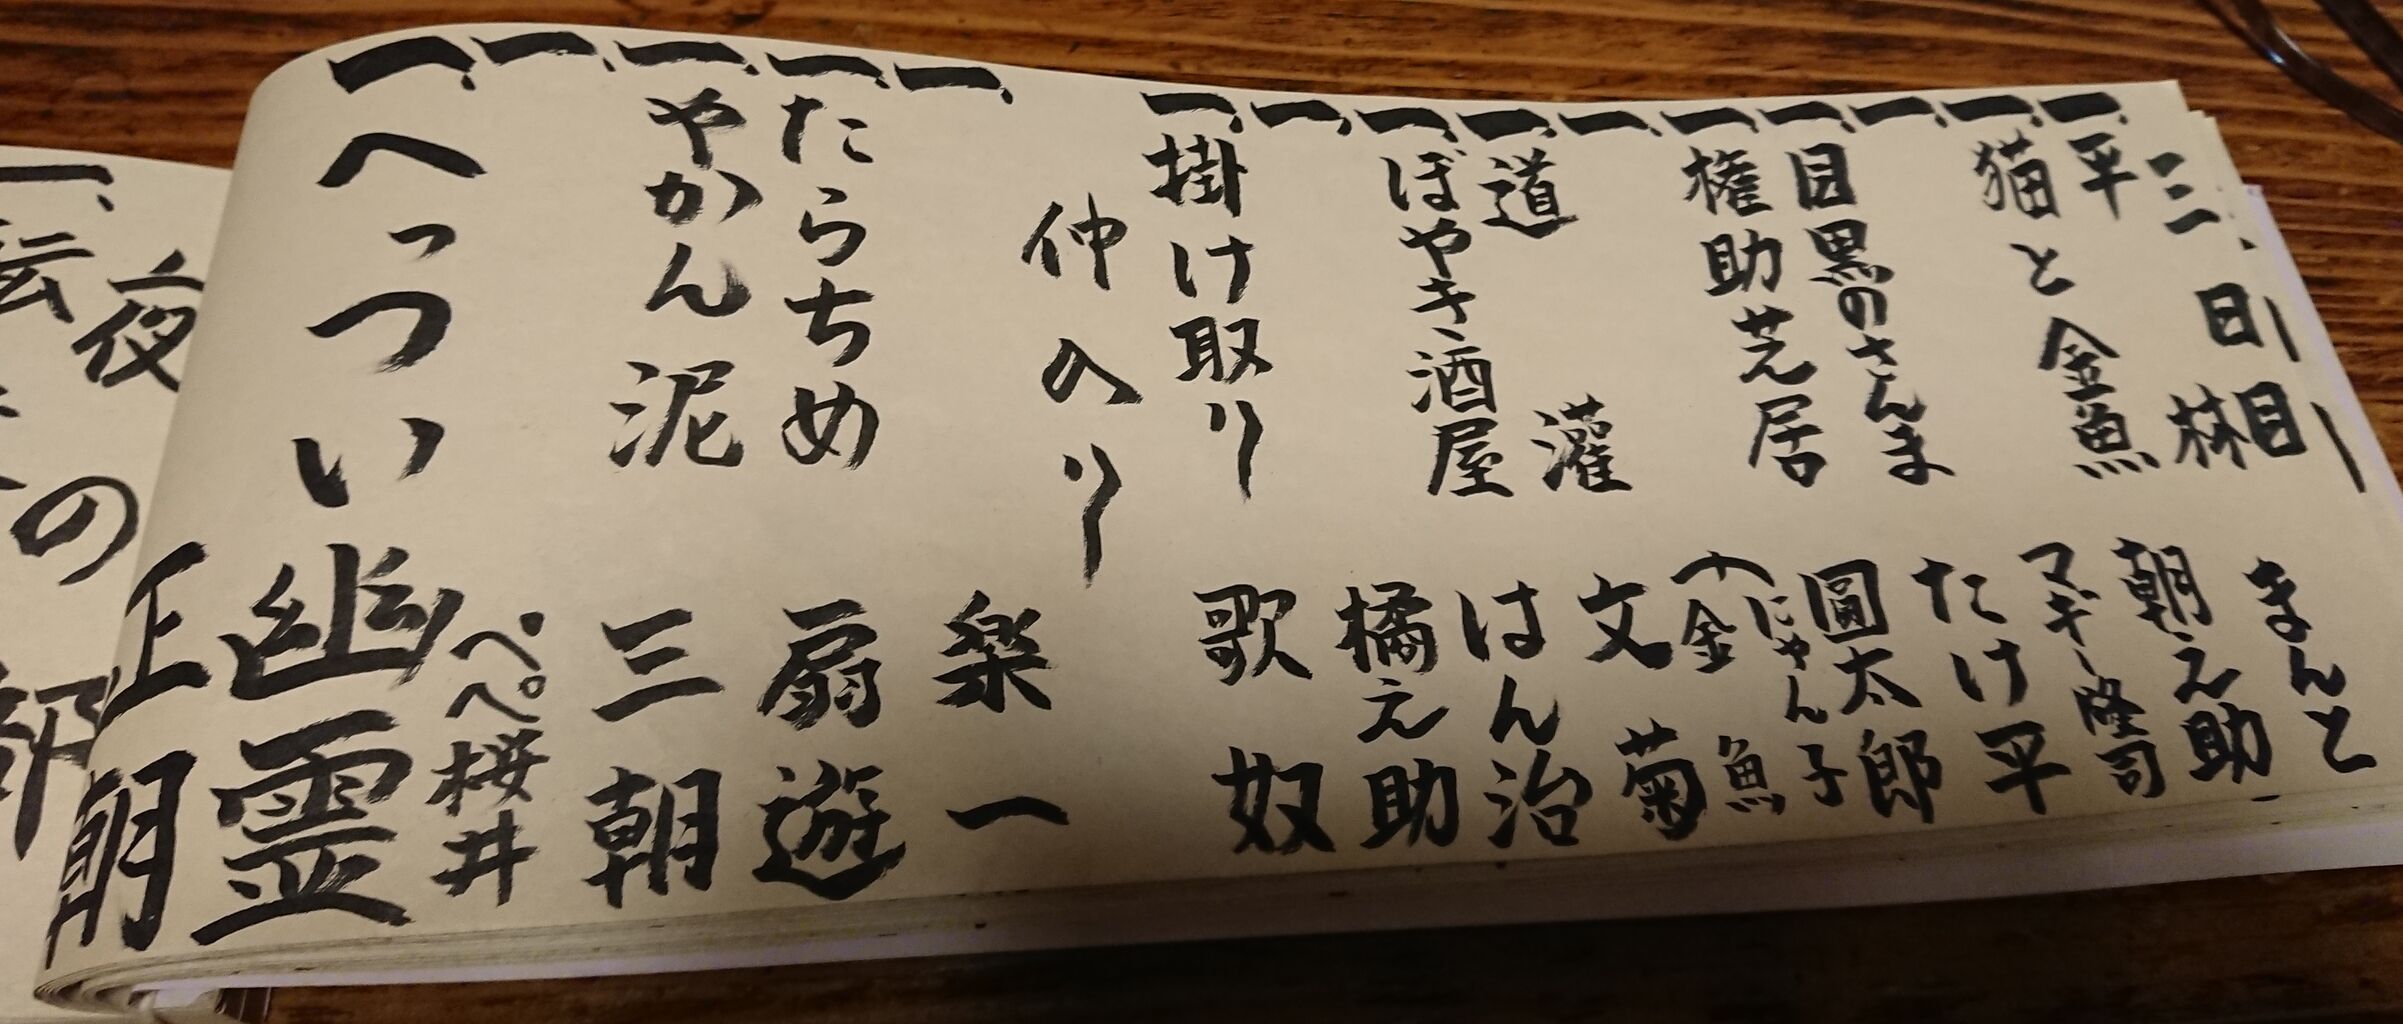 三、日目
一、平林 まんと
一、猫と金魚 朝之助
一、マギー隆司
一、目黒のさんま たけ平
一、権助芝居 圓太郎
一、にゃん子 金魚
一、道灌 文菊
一、ぼやき酒屋 はん治
一、橘之助
一、掛け取り 歌奴
仲入り
一、楽一
一、たらちめ 扇遊
一、やかん泥 三朝
一、ペペ桜井
一、へっつい幽霊 正朝
夜の部
一、